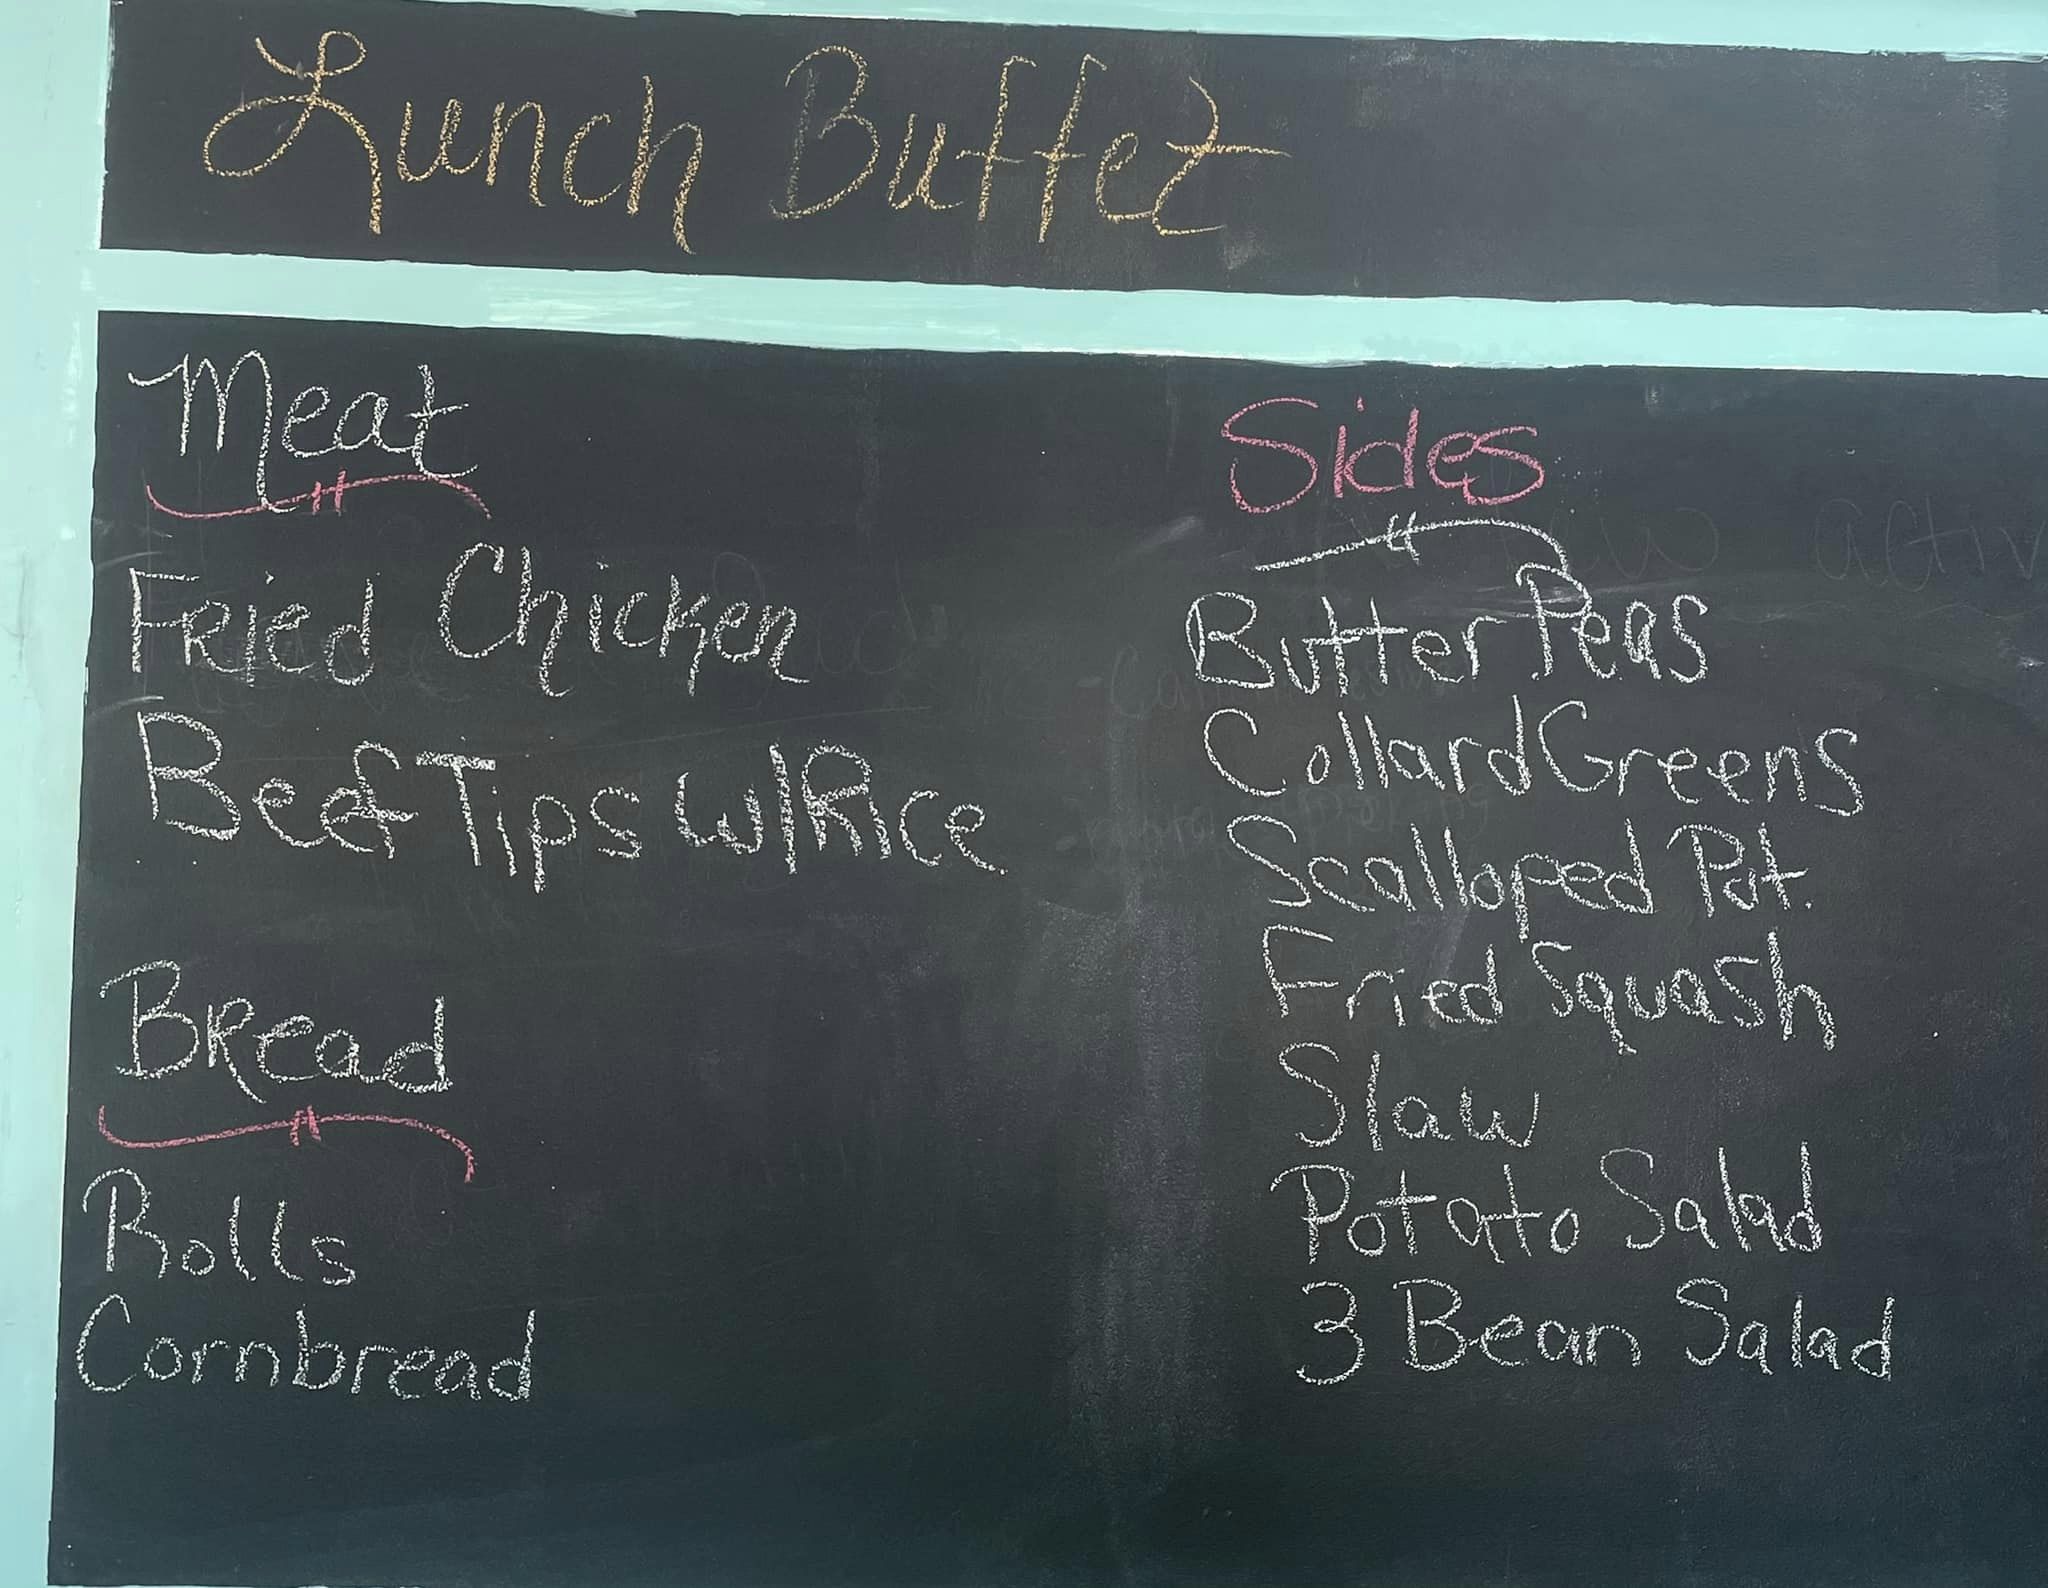 Lunch Buffet
Meat
Fried Chicken
Beef Tips w/Rice
Bread
Rolls
Cornbread
Sides
Butter Peas
Collard Greens
Scalloped Pot.
Fried Squash
Slaw
Potato Salad
3 Bean Salad